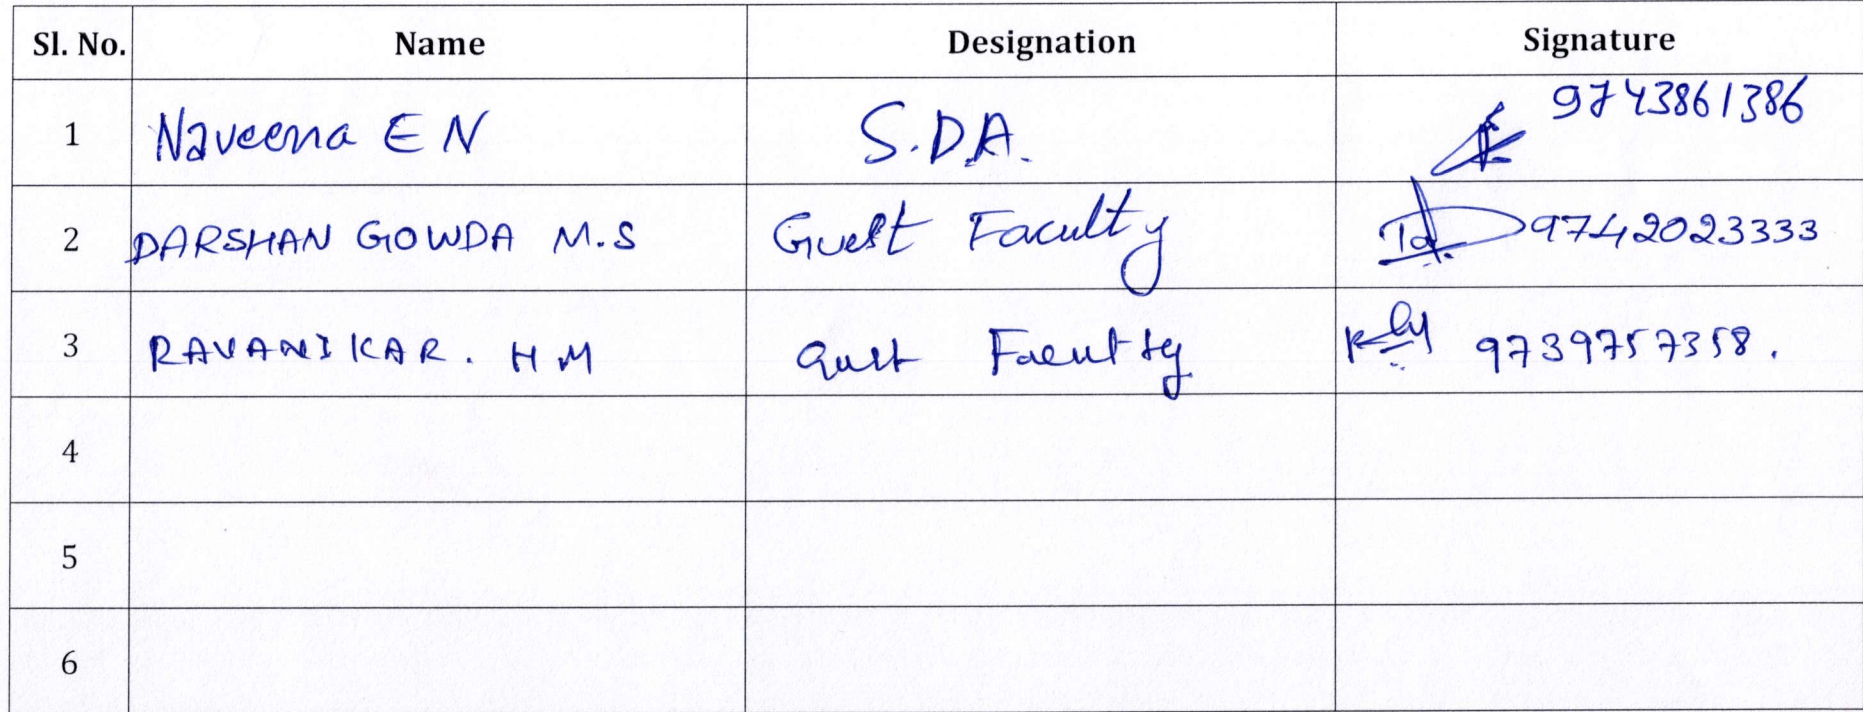 Sl. No. Name Designation Signature
1 Naveena E N S.D.A. 9743861386
2 DARSHAN GOWDA M.S Guest Faculty 9742023333
3 RAVANIKAR. H M Guest Faculty 9739757358.
4
5
6